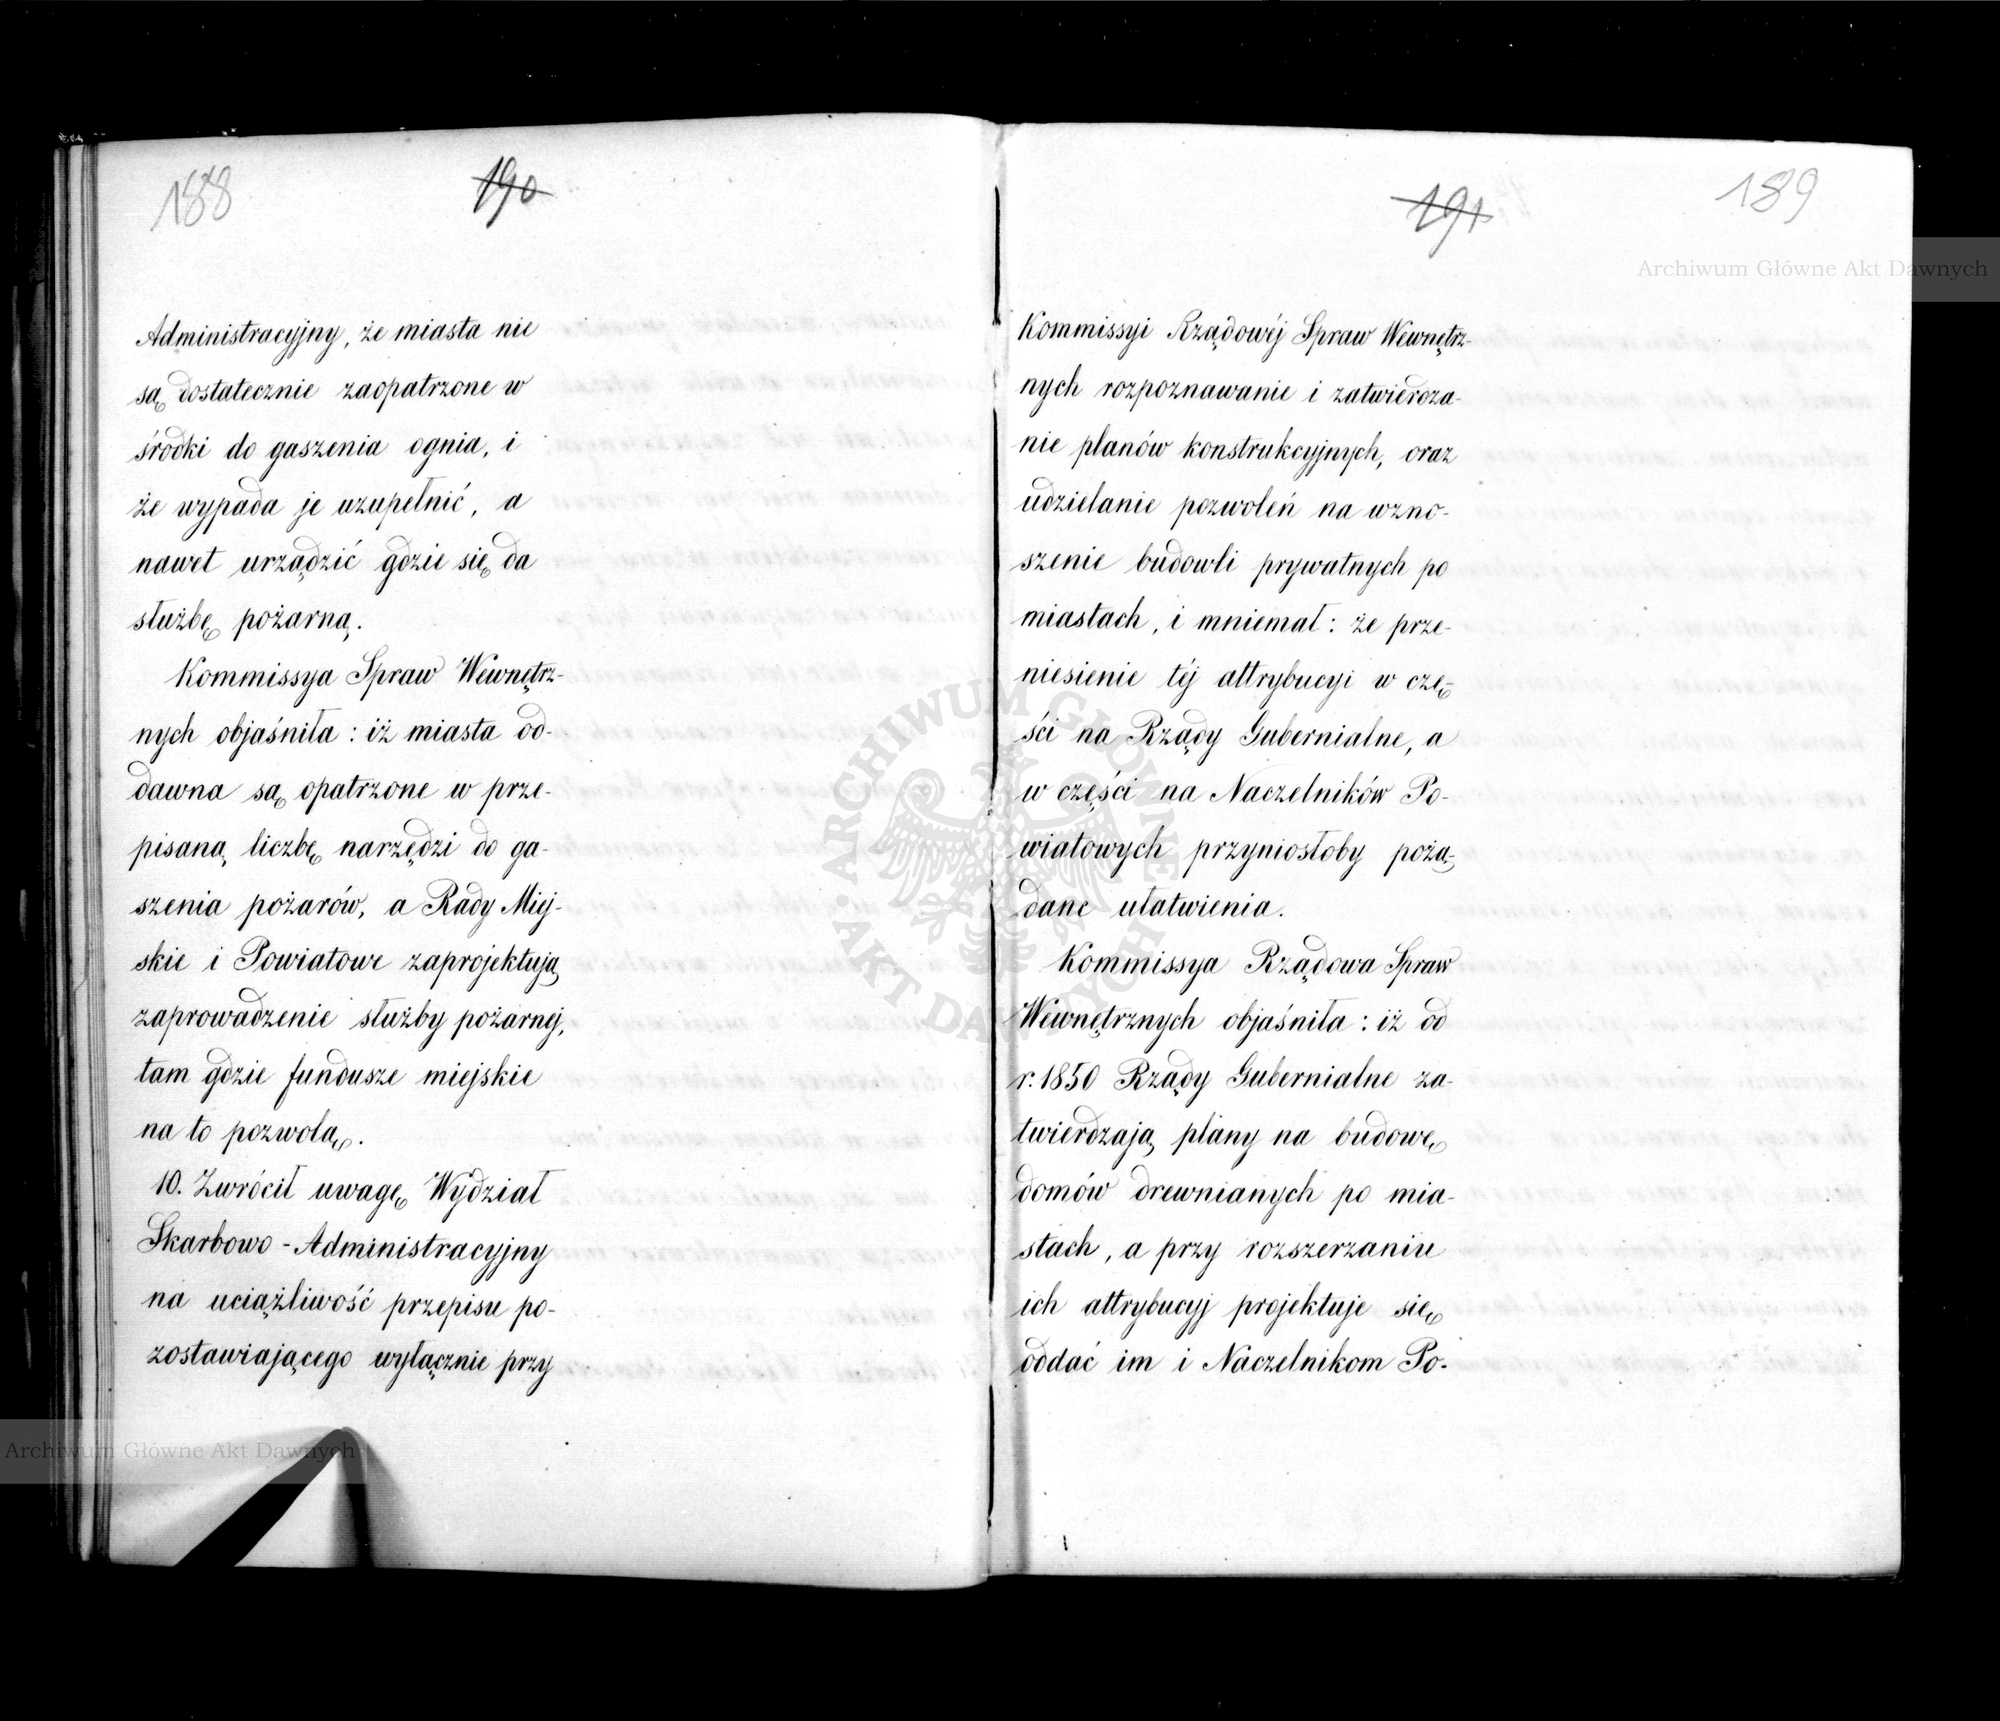 188
190
Administracyjny, że miasta nie
są dostatecznie zaopatrzone w
środki do gaszenia ognia, i
że wypada je uzupełnić, a
nawet urządzić gdzie się da
służbę pożarną.
Kommissya Spraw Wewnętrz-
nych objaśniła: iż miasta od-
dawna są opatrzone w prze-
pisaną liczbę narzędzi do ga-
szenia pożarów, a Rady Miej-
skie i Powiatowe zaprojektują
zaprowadzenie służby pożarnej,
tam gdzie fundusze miejskie
na to pozwolą.
10. Zwrócił uwagę Wydział
Skarbowo-Administracyjny
na uciążliwość przepisu po-
zostawiającego wyłącznie przy
191
189
Kommissyi Rządowéj Spraw Wewnętrz-
nych rozpoznawanie i zatwierdza-
nie planów konstrukcyjnych, oraz
udzielanie pozwoleń na wzno-
szenie budowli prywatnych po
miastach, i mniemał: że prze-
niesienie téj attrybucyi w czę-
ści na Rządy Gubernialne, a
w części na Naczelników Po-
wiatowych przyniosłoby pożą-
dane ułatwienia.
Kommissya Rządowa Spraw
Wewnętrznych objaśniła: iż od
r. 1850 Rządy Gubernialne za-
twierdzają plany na budowę
domów drewnianych po mia-
stach, a przy rozszerzaniu
ich attrybucyj projektuje się
oddać im i Naczelnikom Po-
Archiwum Główne Akt Dawnych
Archiwum Główne Akt Dawnych
ARCHIWUM GŁÓWNE AKT DAWNYCH